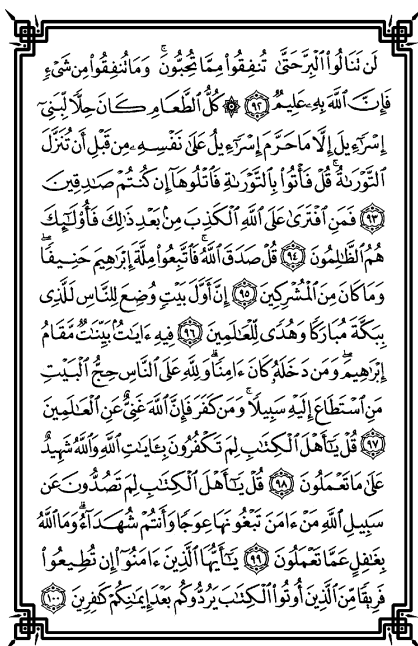 لَن تَنَالُوا۟ ٱلْبِرَّ حَتَّىٰ تُنفِقُوا۟ مِمَّا تُحِبُّونَ ۚ وَمَا تُنفِقُوا۟ مِن شَىْءٍ
فَإِنَّ ٱللَّهَ بِهِۦ عَلِيمٌ ﴿٩٢﴾ ۞ كُلُّ ٱلطَّعَامِ كَانَ حِلًّا لِّبَنِىٓ
إِسْرَٰٓءِيلَ إِلَّا مَا حَرَّمَ إِسْرَٰٓءِيلُ عَلَىٰ نَفْسِهِۦ مِن قَبْلِ أَن تُنَزَّلَ
ٱلتَّوْرَىٰةُ ۗ قُلْ فَأْتُوا۟ بِٱلتَّوْرَىٰةِ فَٱتْلُوهَآ إِن كُنتُمْ صَـٰدِقِينَ
﴿٩٣﴾ فَمَنِ ٱفْتَرَىٰ عَلَى ٱللَّهِ ٱلْكَذِبَ مِنۢ بَعْدِ ذَٰلِكَ فَأُو۟لَـٰٓئِكَ
هُمُ ٱلظَّـٰلِمُونَ ﴿٩٤﴾ قُلْ صَدَقَ ٱللَّهُ ۗ فَٱتَّبِعُوا۟ مِلَّةَ إِبْرَٰهِيمَ حَنِيفًا ۖ
وَمَا كَانَ مِنَ ٱلْمُشْرِكِينَ ﴿٩٥﴾ إِنَّ أَوَّلَ بَيْتٍ وُضِعَ لِلنَّاسِ لَلَّذِى
بِبَكَّةَ مُبَارَكًا وَهُدًى لِّلْعَـٰلَمِينَ ﴿٩٦﴾ فِيهِ ءَايَـٰتٌۢ بَيِّنَـٰتٌ مَّقَامُ
إِبْرَٰهِيمَ ۖ وَمَن دَخَلَهُۥ كَانَ ءَامِنًا ۗ وَلِلَّهِ عَلَى ٱلنَّاسِ حِجُّ ٱلْبَيْتِ
مَنِ ٱسْتَطَاعَ إِلَيْهِ سَبِيلًا ۚ وَمَن كَفَرَ فَإِنَّ ٱللَّهَ غَنِىٌّ عَنِ ٱلْعَـٰلَمِينَ
﴿٩٧﴾ قُلْ يَـٰٓأَهْلَ ٱلْكِتَـٰبِ لِمَ تَكْفُرُونَ بِـَٔايَـٰتِ ٱللَّهِ وَٱللَّهُ شَهِيدٌ
عَلَىٰ مَا تَعْمَلُونَ ﴿٩٨﴾ قُلْ يَـٰٓأَهْلَ ٱلْكِتَـٰبِ لِمَ تَصُدُّونَ عَن
سَبِيلِ ٱللَّهِ مَنْ ءَامَنَ تَبْغُونَهَا عِوَجًا وَأَنتُمْ شُهَدَآءُ ۗ وَمَا ٱللَّهُ
بِغَـٰفِلٍ عَمَّا تَعْمَلُونَ ﴿٩٩﴾ يَـٰٓأَيُّهَا ٱلَّذِينَ ءَامَنُوٓا۟ إِن تُطِيعُوا۟
فَرِيقًا مِّنَ ٱلَّذِينَ أُوتُوا۟ ٱلْكِتَـٰبَ يَرُدُّوكُم بَعْدَ إِيمَـٰنِكُمْ كَـٰفِرِينَ ﴿١٠٠﴾